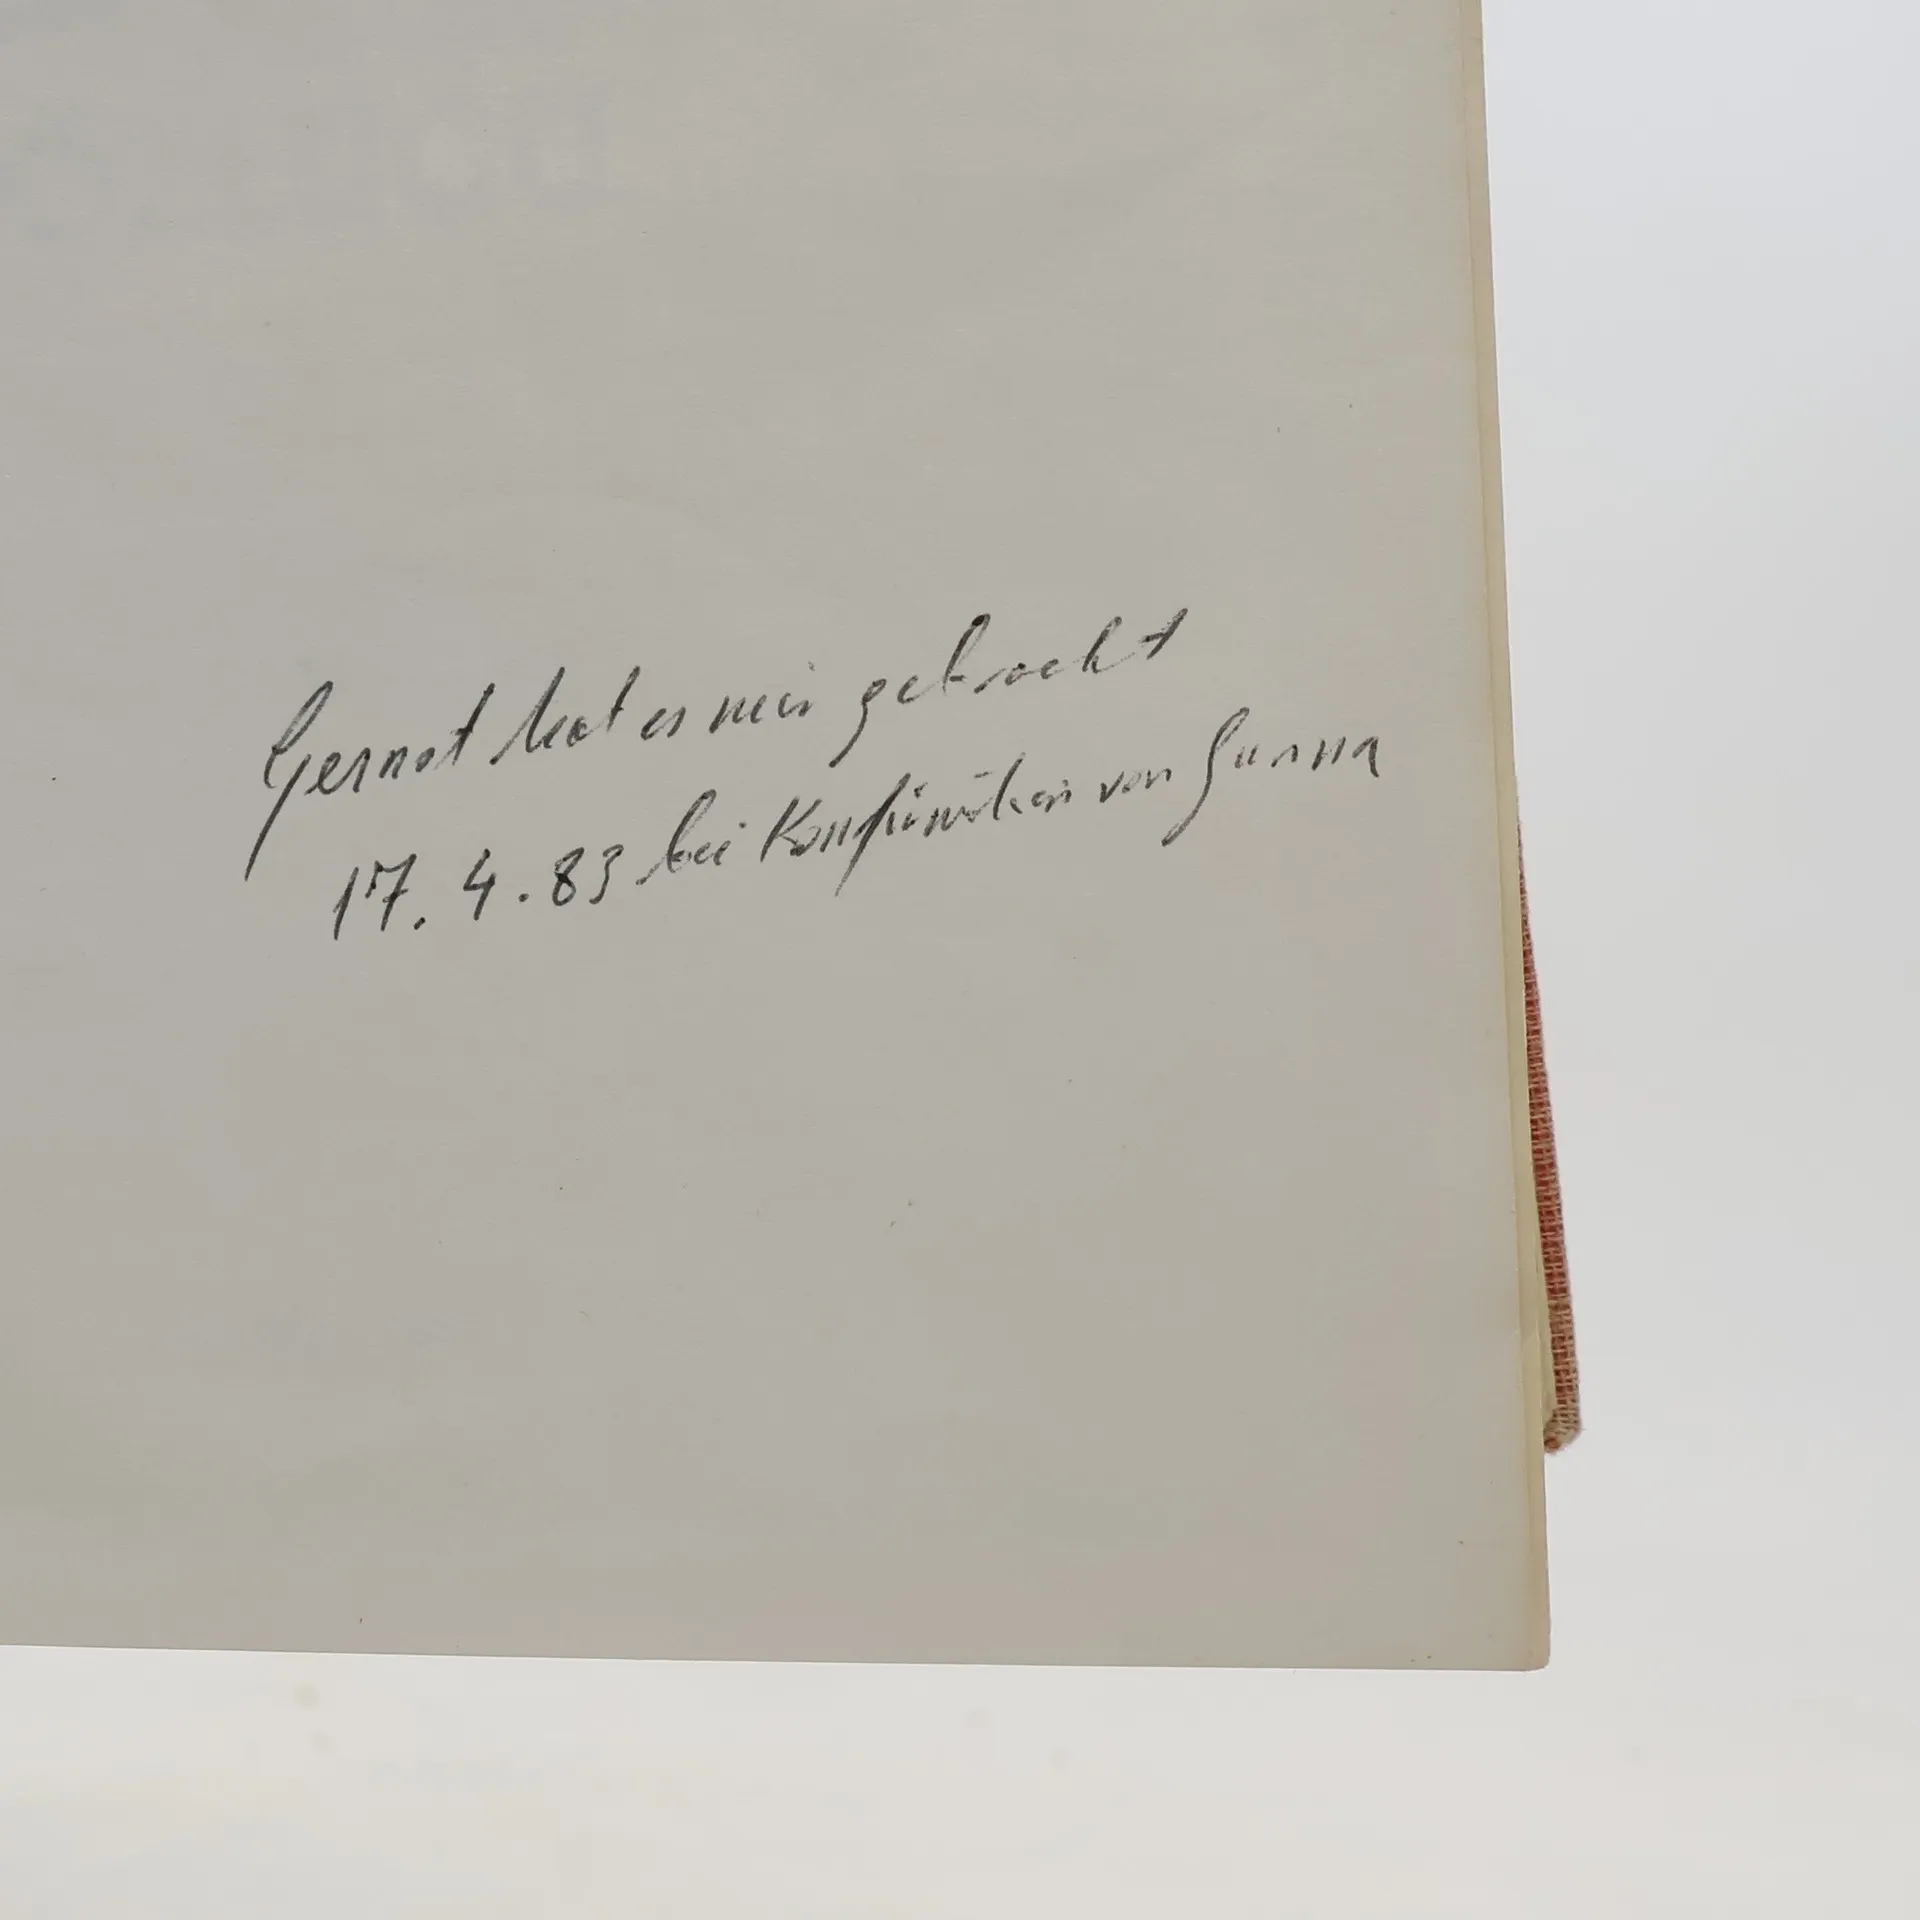 Gernot hat es mir gebracht
17. 4. 83 bei Konfirmation von Gunna